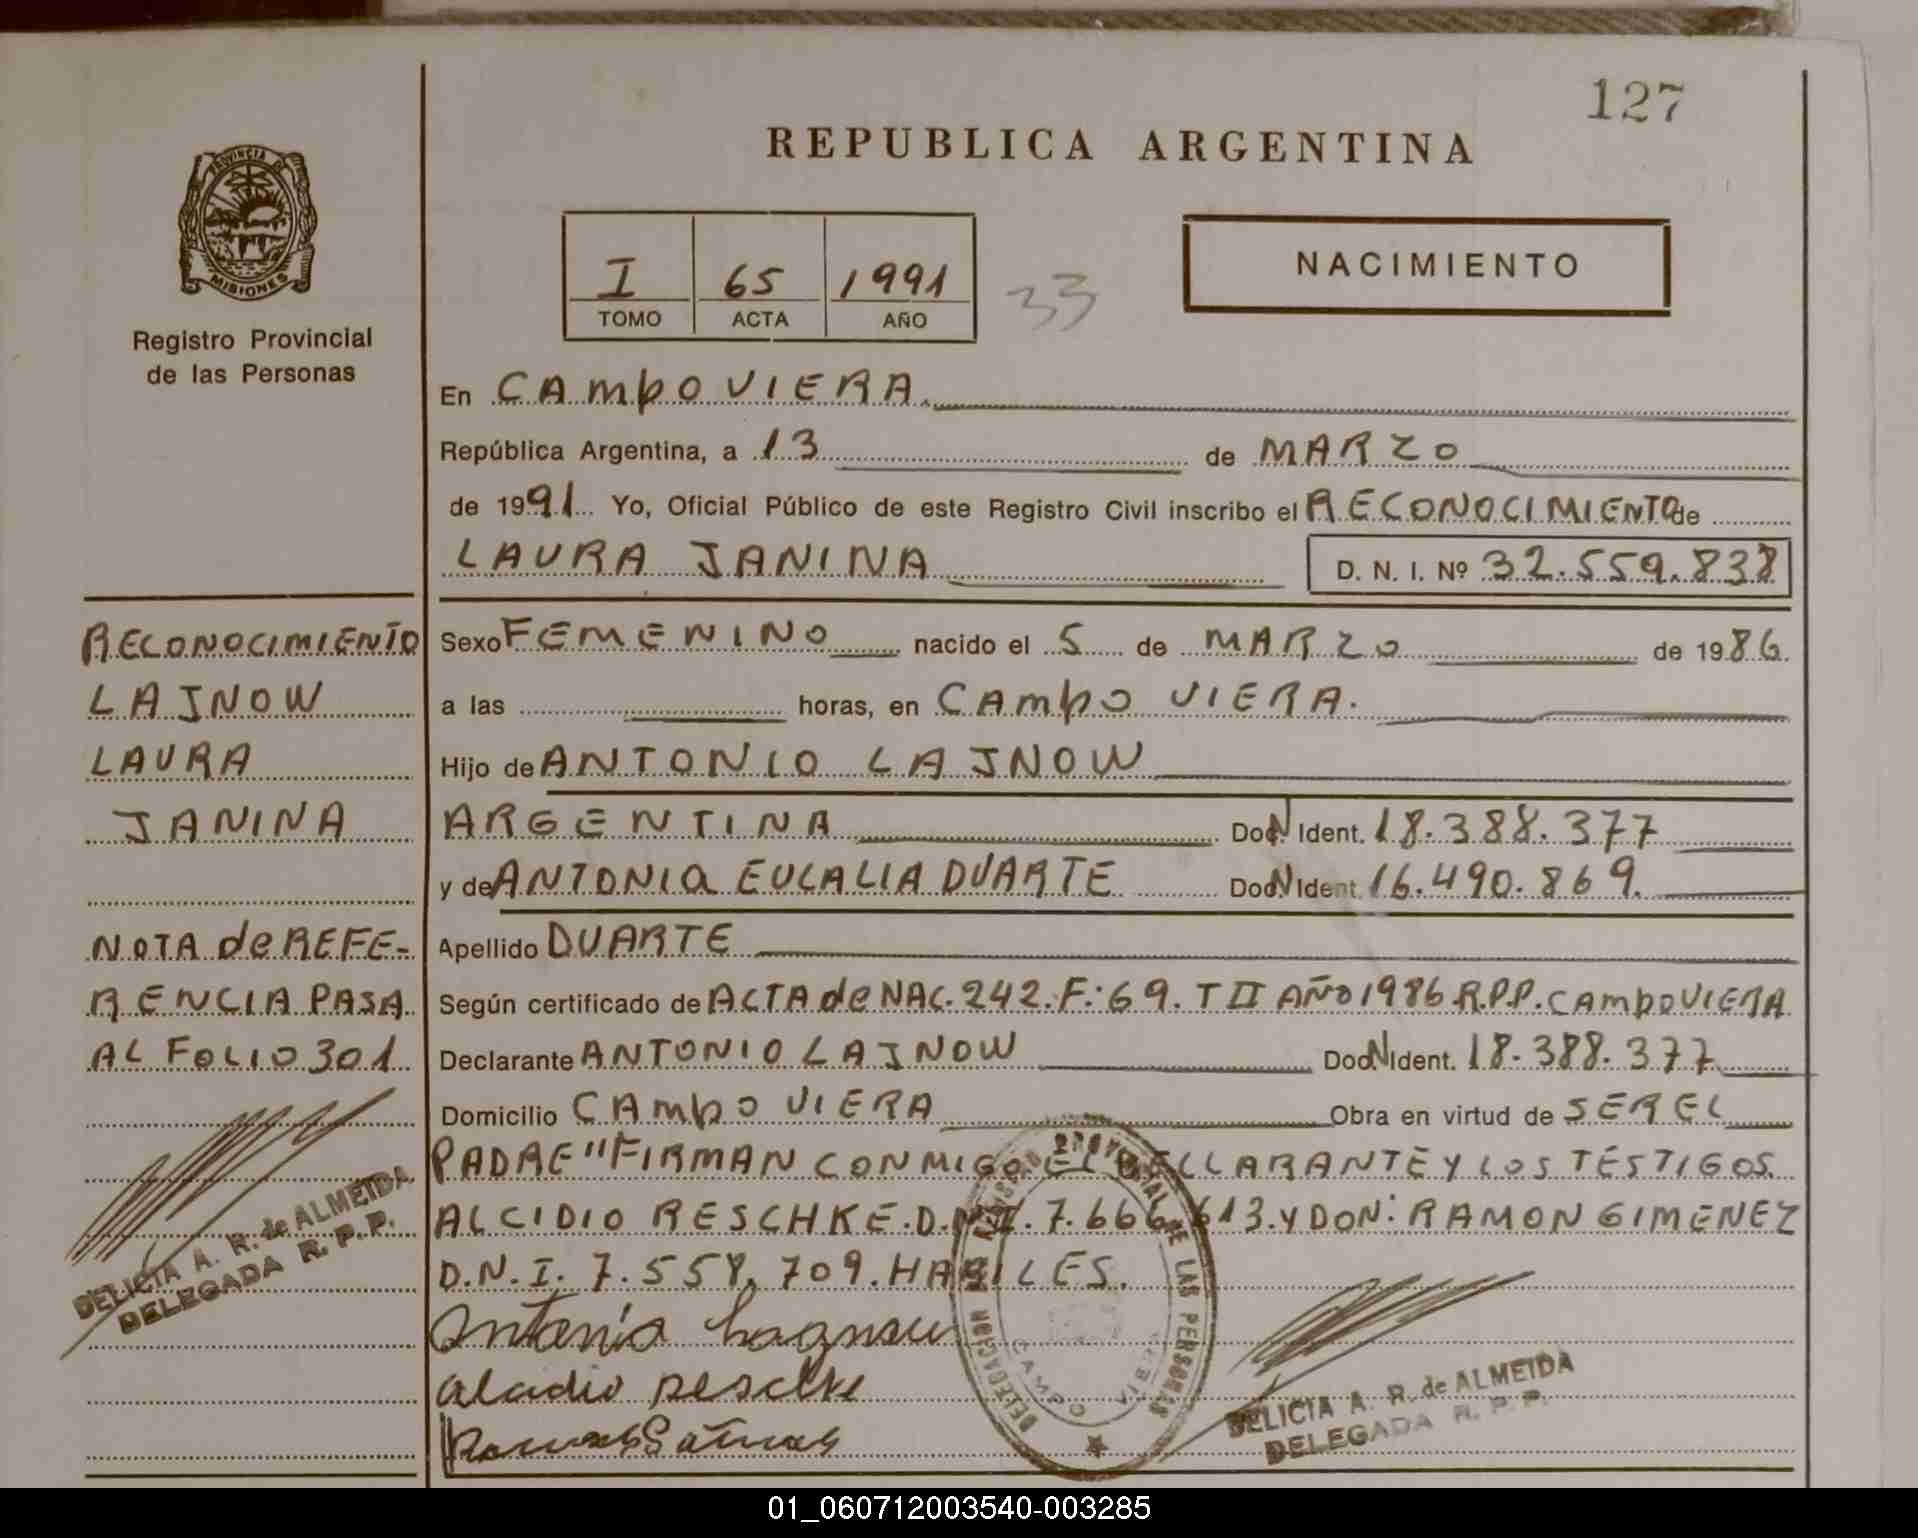 127
REPUBLICA ARGENTINA
PROVINCIA DE
MISIONES
Registro Provincial
de las Personas
I 65 1991
TOMO ACTA AÑO
33
NACIMIENTO
En CAMPO VIERA.
República Argentina, a 13 de MARZO
de 1991 Yo, Oficial Público de este Registro Civil inscribo el RECONOCIMIENTO de
LAURA JANINA D. N. I. Nº 32.559.838
Sexo FEMENINO nacido el 5 de MARZO de 1986.
a las horas, en CAMPO VIERA.
Hijo de ANTONIO LAJNOW
ARGENTINA Doc. N Ident. 18.388.377
y de ANTONIA EULALIA DUARTE Doc. N Ident. 16.490.869.
Apellido DUARTE
Según certificado de ACTA de NAC. 242. F: 69. T II AÑO 1986 R.P.P. CAMPO VIERA
Declarante ANTONIO LAJNOW Doc. N Ident. 18.388.377
Domicilio CAMPO VIERA Obra en virtud de SER EL
PADRE" FIRMAN CONMIGO EL DECLLARANTE Y LOS TESTIGOS.
ALCIDIO RESCHKE. D.N.I. 7.666.613. Y DON: RAMON GIMENEZ
D.N.I. 7.558.709. HABILES.
Antonio
aladio reschke
DELEGACION DEL REGISTRO PROVINCIAL DE LAS PERSONAS
CAMPO VIERA
DELICIA A. R. de ALMEIDA
DELEGADA R. P. P.
RECONOCIMIENTO
LAJNOW
LAURA
JANINA
NOTA de REFE-
RENCIA PASA
AL FOLIO 301
DELICIA A. R. de ALMEIDA
DELEGADA R. P. P.
01_060712003540-003285